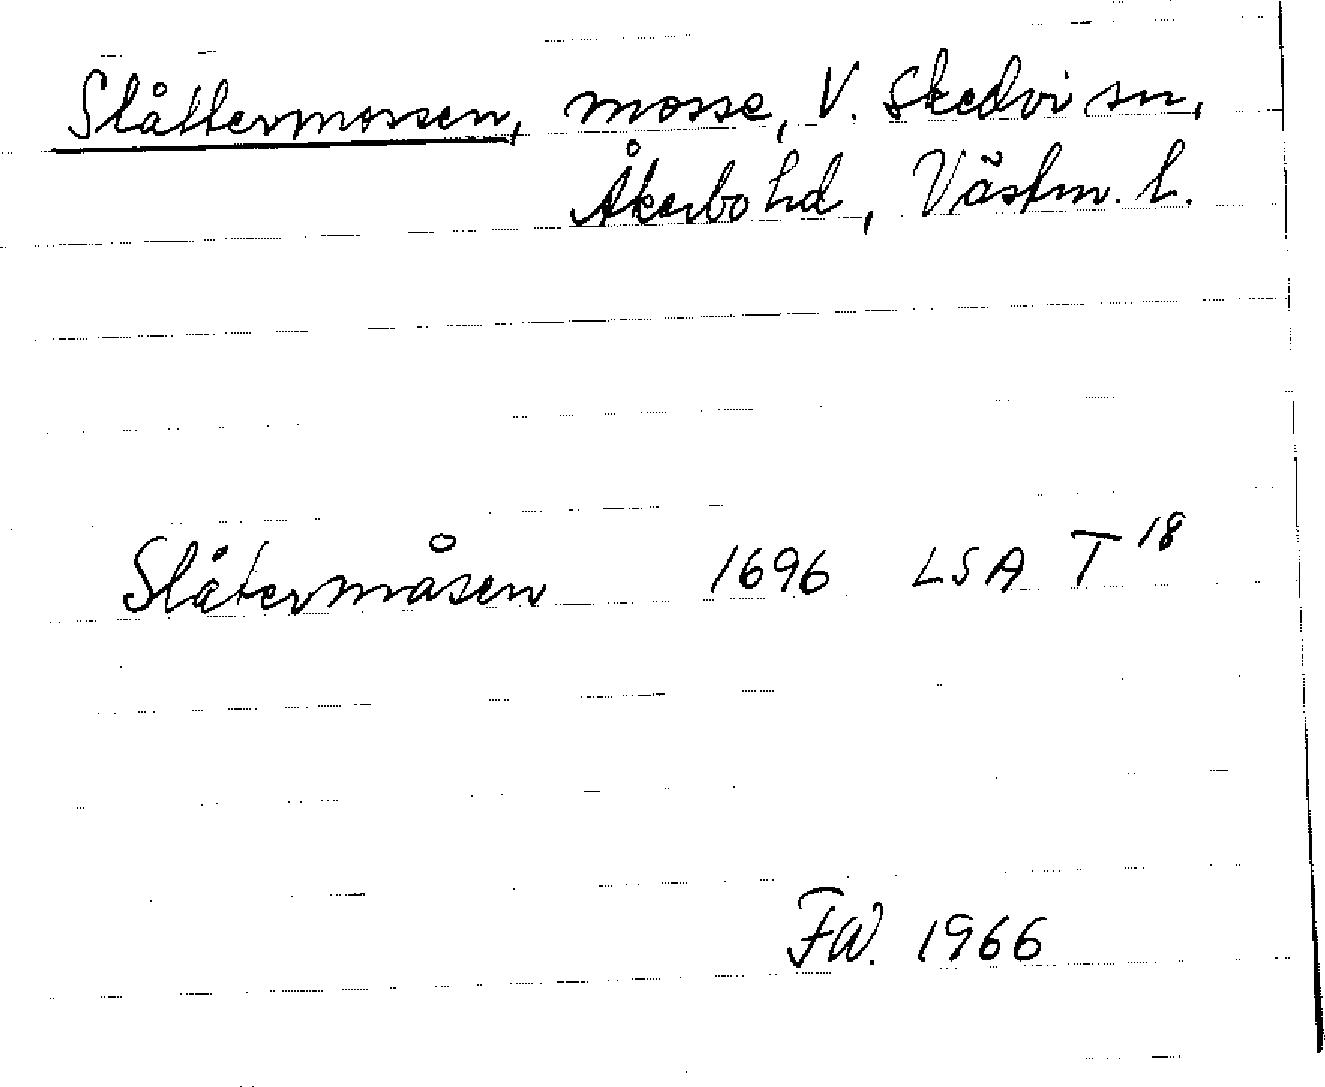 Slåttermossen, mosse, V. Skedvi sn,
Åkerbo hd, Västm. l.
Slåtermåsen 1696 LSA T 18
FW. 1966